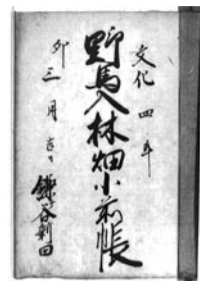 文化四年
野馬入林畑小前帳
卯三月吉日
鎌ケ谷新田